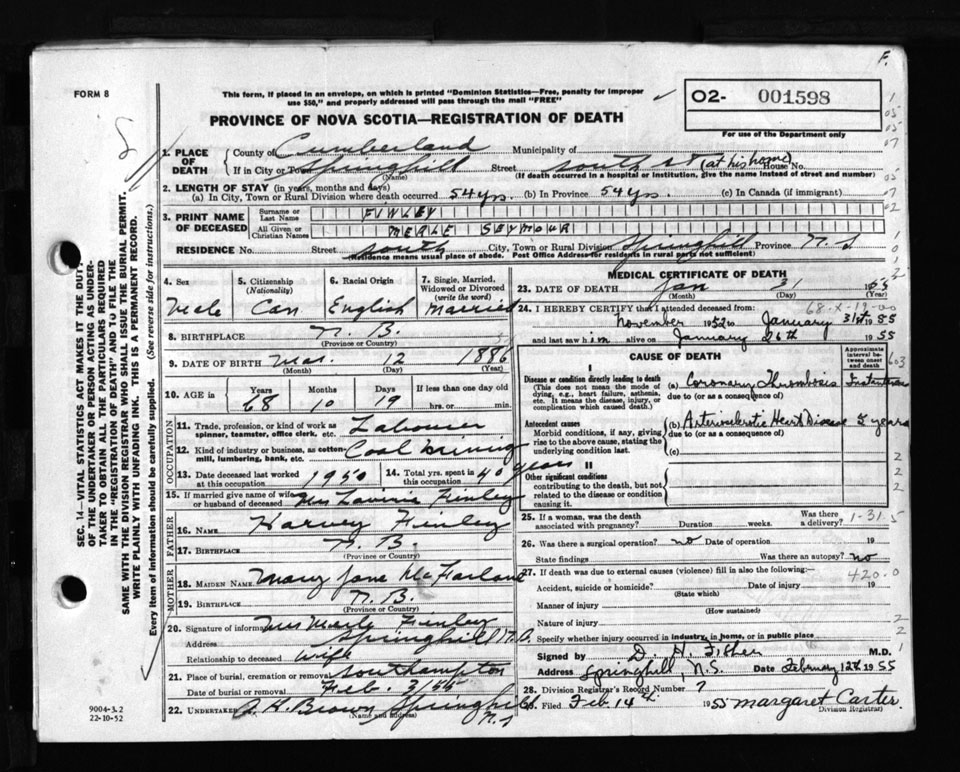 F.
FORM 8
This form, if placed in an envelope, on which is printed "Dominion Statistics—Free, penalty for improper
use $50," and properly addressed will pass through the mail "FREE"
O2- 001598
For use of the Department only
PROVINCE OF NOVA SCOTIA—REGISTRATION OF DEATH
1. PLACE OF DEATH
County of Cumberland Municipality of
If in City or Town Springhill Street South St (at his home) House No.
(Name) (If death occurred in a hospital or institution, give the name instead of street and number)
2. LENGTH OF STAY (in years, months and days)
(a) In City, Town or Rural Division where death occurred 54 yrs. (b) In Province 54 yrs. (c) In Canada (if immigrant)
3. PRINT NAME OF DECEASED
Surname or Last Name FINLEY
All Given or Christian Names MERLE SEYMOUR
RESIDENCE No. Street South City, Town or Rural Division Springhill Province N.S
(Residence means usual place of abode. Post Office Address for residents in rural parts not sufficient)
4. Sex Male
5. Citizenship (Nationality) Can
6. Racial Origin English
7. Single, Married, Widowed or Divorced (write the word) Married
8. BIRTHPLACE N.B.
(Province or Country)
9. DATE OF BIRTH Mar. 12 1886
(Month) (Day) (Year)
10. AGE in Years 68 Months 10 Days 19 If less than one day
hrs. or min.
OCCUPATION
11. Trade, profession, or kind of work as spinner, teamster, office clerk, etc. Labourer
12. Kind of industry or business, as cotton-mill, lumbering, bank, etc. Coal mining
13. Date deceased last worked at this occupation 1950
14. Total yrs. spent in this occupation 40 years
15. If married give name of wife or husband of deceased Mrs Lavinia Finley
FATHER
16. NAME Harvey Finley
17. BIRTHPLACE N.B.
(Province or Country)
MOTHER
18. MAIDEN NAME Mary Jane McFarlane
19. BIRTHPLACE N.B.
(Province or Country)
20. Signature of informant Mrs Merle Finley
Address Springhill N.S.
Relationship to deceased Wife
21. Place of burial, cremation or removal Southampton
Date of burial or removal Feb. 3/55
22. UNDERTAKER A. H. Brown Springhill N.S
(Name and address)
MEDICAL CERTIFICATE OF DEATH
23. DATE OF DEATH Jan 31 1955
(Month) (Day) (Year)
68-X-19-00
24. I HEREBY CERTIFY that I attended deceased from:
November 1952 to January 31st 1955
and last saw him alive on January 26th 1955
CAUSE OF DEATH
Approximate interval between onset and death
I
Disease or condition directly leading to death
(This does not mean the mode of dying, e.g., heart failure, asthenia, etc. It means the disease, injury, or complication which caused death.)
(a) Coronary Thrombosis
due to (or as a consequence of)
Antecedent causes
Morbid conditions, if any, giving rise to the above cause, stating the underlying condition last.
(b) Arteriosclerotic Heart Disease years
due to (or as a consequence of)
(c)
II
Other significant conditions
contributing to the death, but not related to the disease or condition causing it.
25. If a woman, was the death associated with pregnancy? Duration weeks. Was there a delivery?
1-31-5
26. Was there a surgical operation? no Date of operation 19
State findings Was there an autopsy? no
27. If death was due to external causes (violence) fill in also the following:—
420.0
Accident, suicide or homicide? Date of injury 19
(State which)
Manner of injury
(How sustained)
Nature of injury
Specify whether injury occurred in industry, in home, or in public place
Signed by D. H. Fisher M.D.
Address Springhill, N.S. Date February 12th 1955
28. Division Registrar's Record Number 7
Filed Feb 14th 1955 Margaret Carter.
Division Registrar)
SEC. 14—VITAL STATISTICS ACT MAKES IT THE DUTY
OF THE UNDERTAKER OR PERSON ACTING AS UNDER-
TAKER TO OBTAIN ALL THE PARTICULARS REQUIRED
IN THE "REGISTRATION OF DEATH" AND TO FILE THE
SAME WITH THE DIVISION REGISTRAR WHO SHALL ISSUE THE BURIAL PERMIT.
WRITE PLAINLY WITH UNFADING INK. THIS IS A PERMANENT RECORD.
Every item of information should be carefully supplied. (See reverse side for instructions.)
9004-3.2
22-10-52